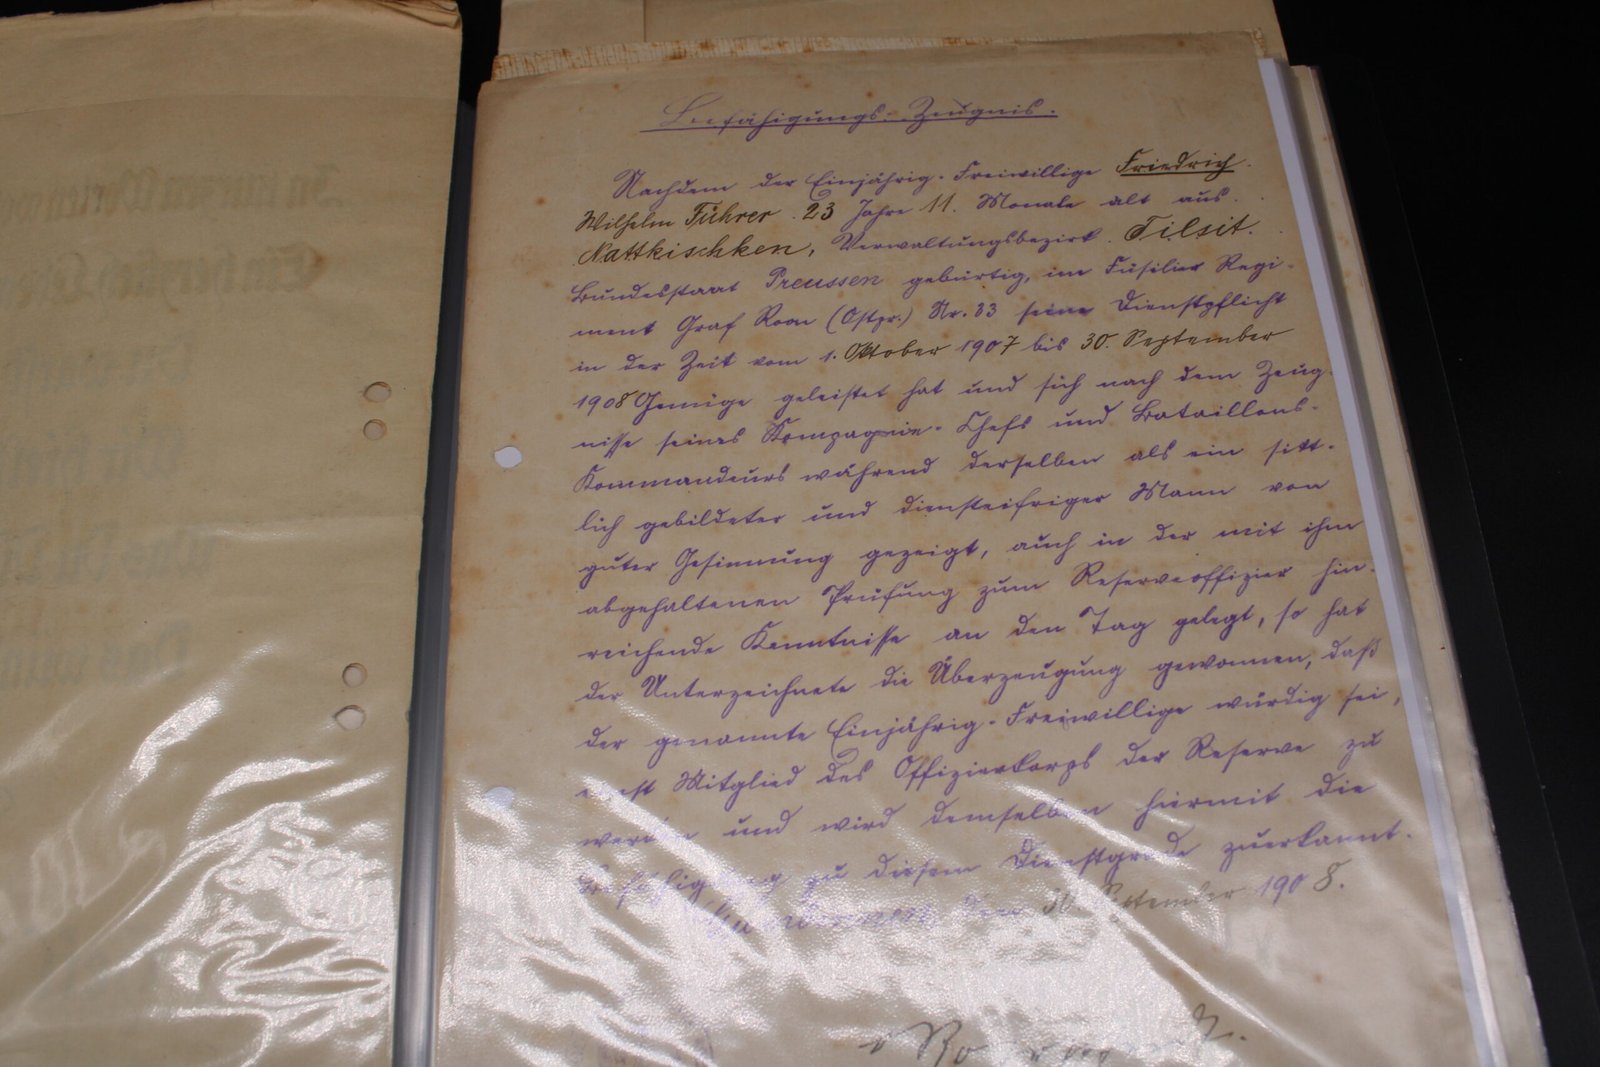 Befähigungs-Zeugnis.
Nachdem der Einjährig-Freiwillige Friedrich
Wilhelm Führer 23 Jahre 11 Monate alt aus
Nattkischken, Verwaltungsbezirk Tilsit.
Bundesstaat Preussen gebürtig, im Füsilier Regi-
ment Graf Roon (Ostpr.) Nr. 33 seine Dienstpflicht
in der Zeit vom 1. Oktober 1907 bis 30. September
1908 Genüge geleistet hat und sich nach dem Zeug-
nisse seines Kompagnie-Chefs und Bataillons-
Kommandeurs während derselben als ein sitt-
lich gebildeter und diensteifriger Mann von
guter Gesinnung gezeigt, auch in der mit ihm
abgehaltenen Prüfung zum Reserveoffizier hin-
reichende Kenntnisse an den Tag gelegt, so hat
der Unterzeichnete die Überzeugung gewonnen, daß
der genannte Einjährig-Freiwillige würdig sei,
einst Mitglied des Offizierkorps der Reserve zu
werden und wird demselben hiermit die
Befähigung zu diesem Dienstgrade zuerkannt.
Gumbinnen, den 30. September 1908.